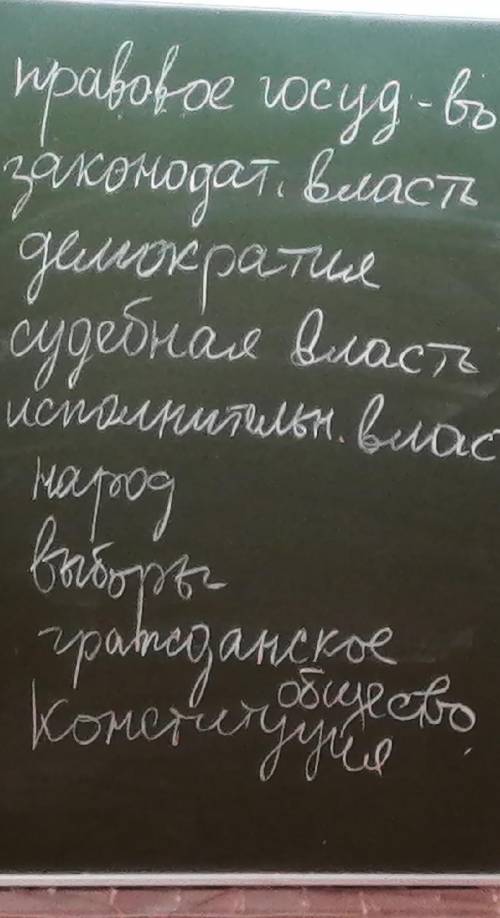 правовое госуд-во
законодат. власть
демократия
судебная власть
исполнительн. влас
народ
выборы
гражданское
общество
Конституция